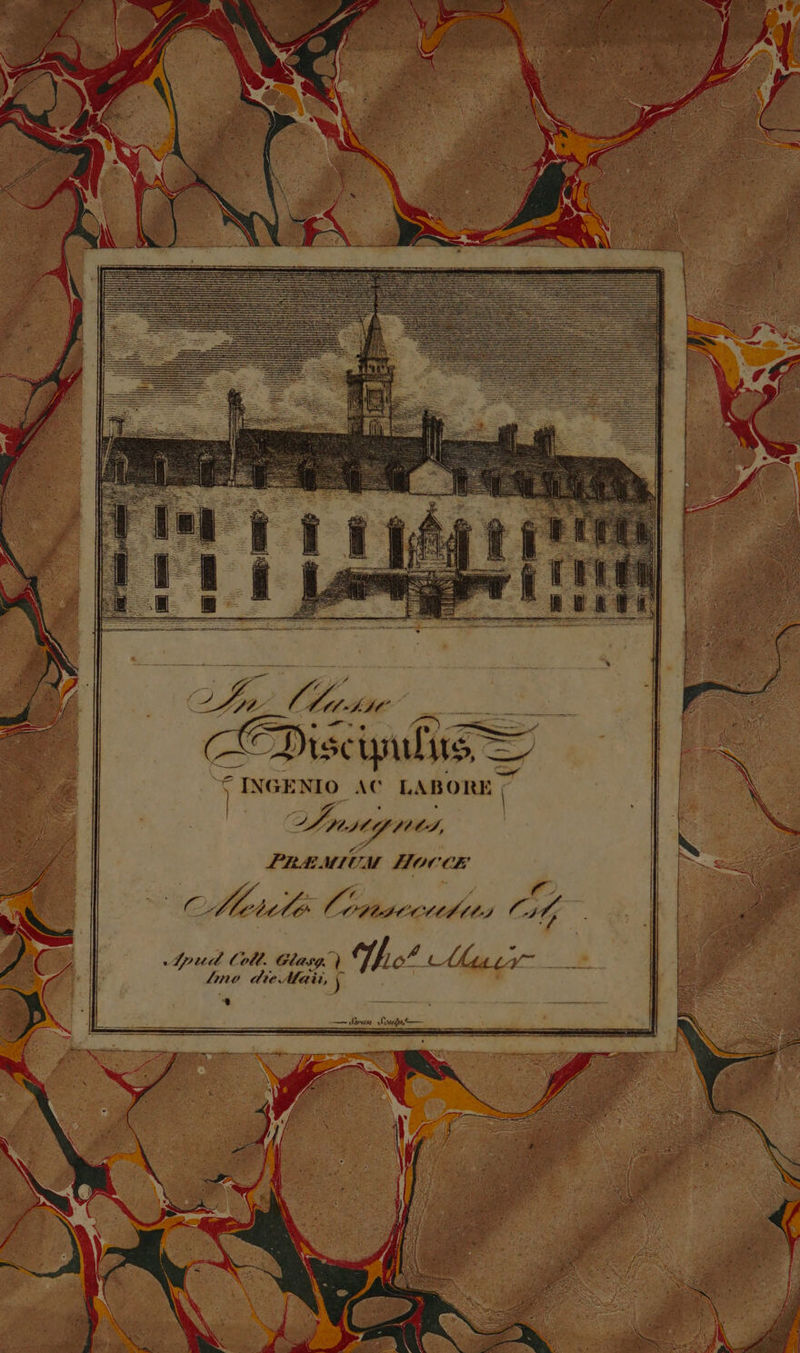 In Classe
Discipulus,
INGENIO AC LABORE
Insignis,
PRÆMIUM HOCCE
Merito Consecutus Est,
Apud Coll. Glasg. } Thos Muir
Imo die Maii, }
Swan Sculpt